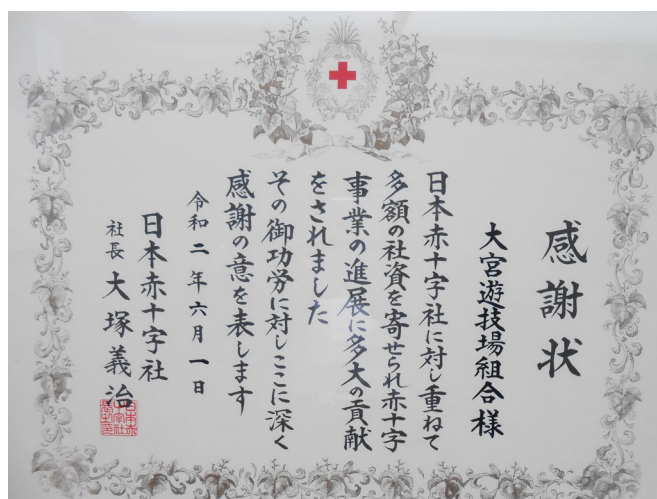 感謝状
大宮遊技場組合様
日本赤十字社に対し重ねて
多額の社資を寄せられ赤十字
事業の進展に多大の貢献
をされました
その御功労に対しここに深く
感謝の意を表します
令和二年六月一日
日本赤十字社
社長 大塚義治